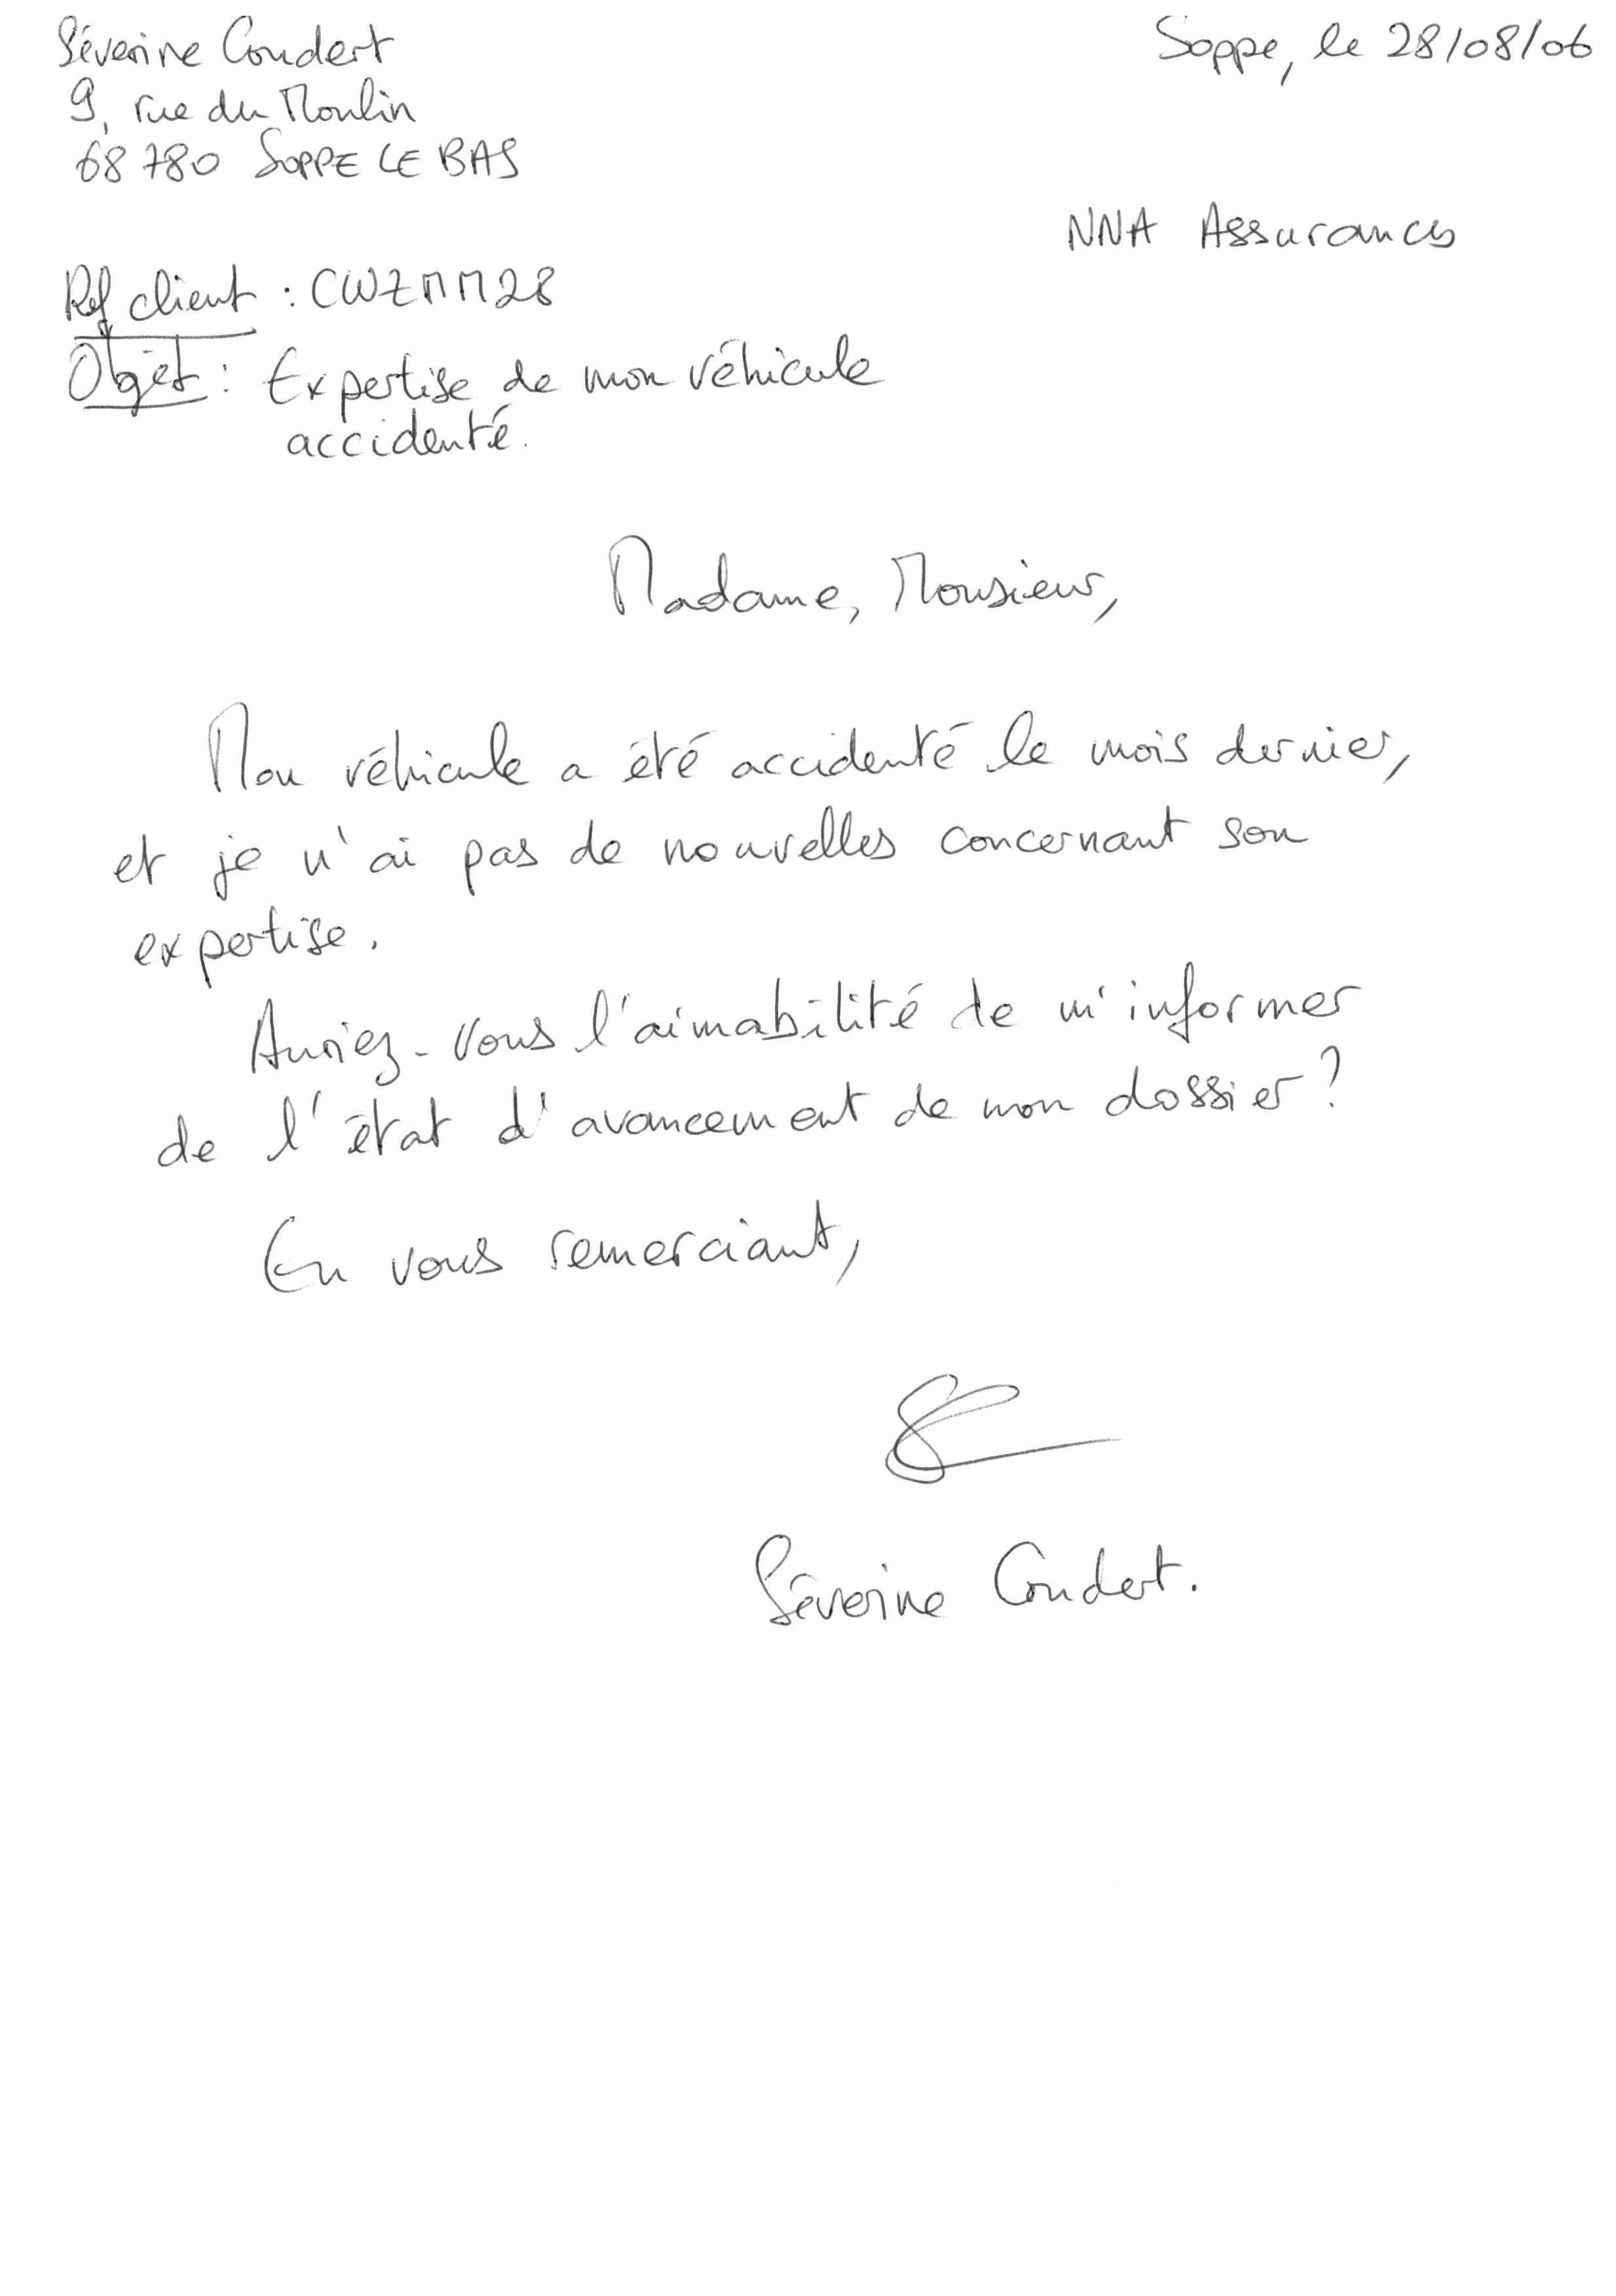 Séverine Coudert
9, rue du Moulin
68780 SOPPE LE BAS
Soppe, le 28/08/06
NNA Assurances
Ref client : CWZMM28
Objet : Expertise de mon véhicule
accidenté.
Madame, Monsieur,
Mon véhicule a été accidenté le mois dernier,
et je n'ai pas de nouvelles concernant son
expertise.
Auriez-vous l'aimabilité de m'informer
de l'état d'avancement de mon dossier ?
En vous remerciant,
Séverine Coudert.